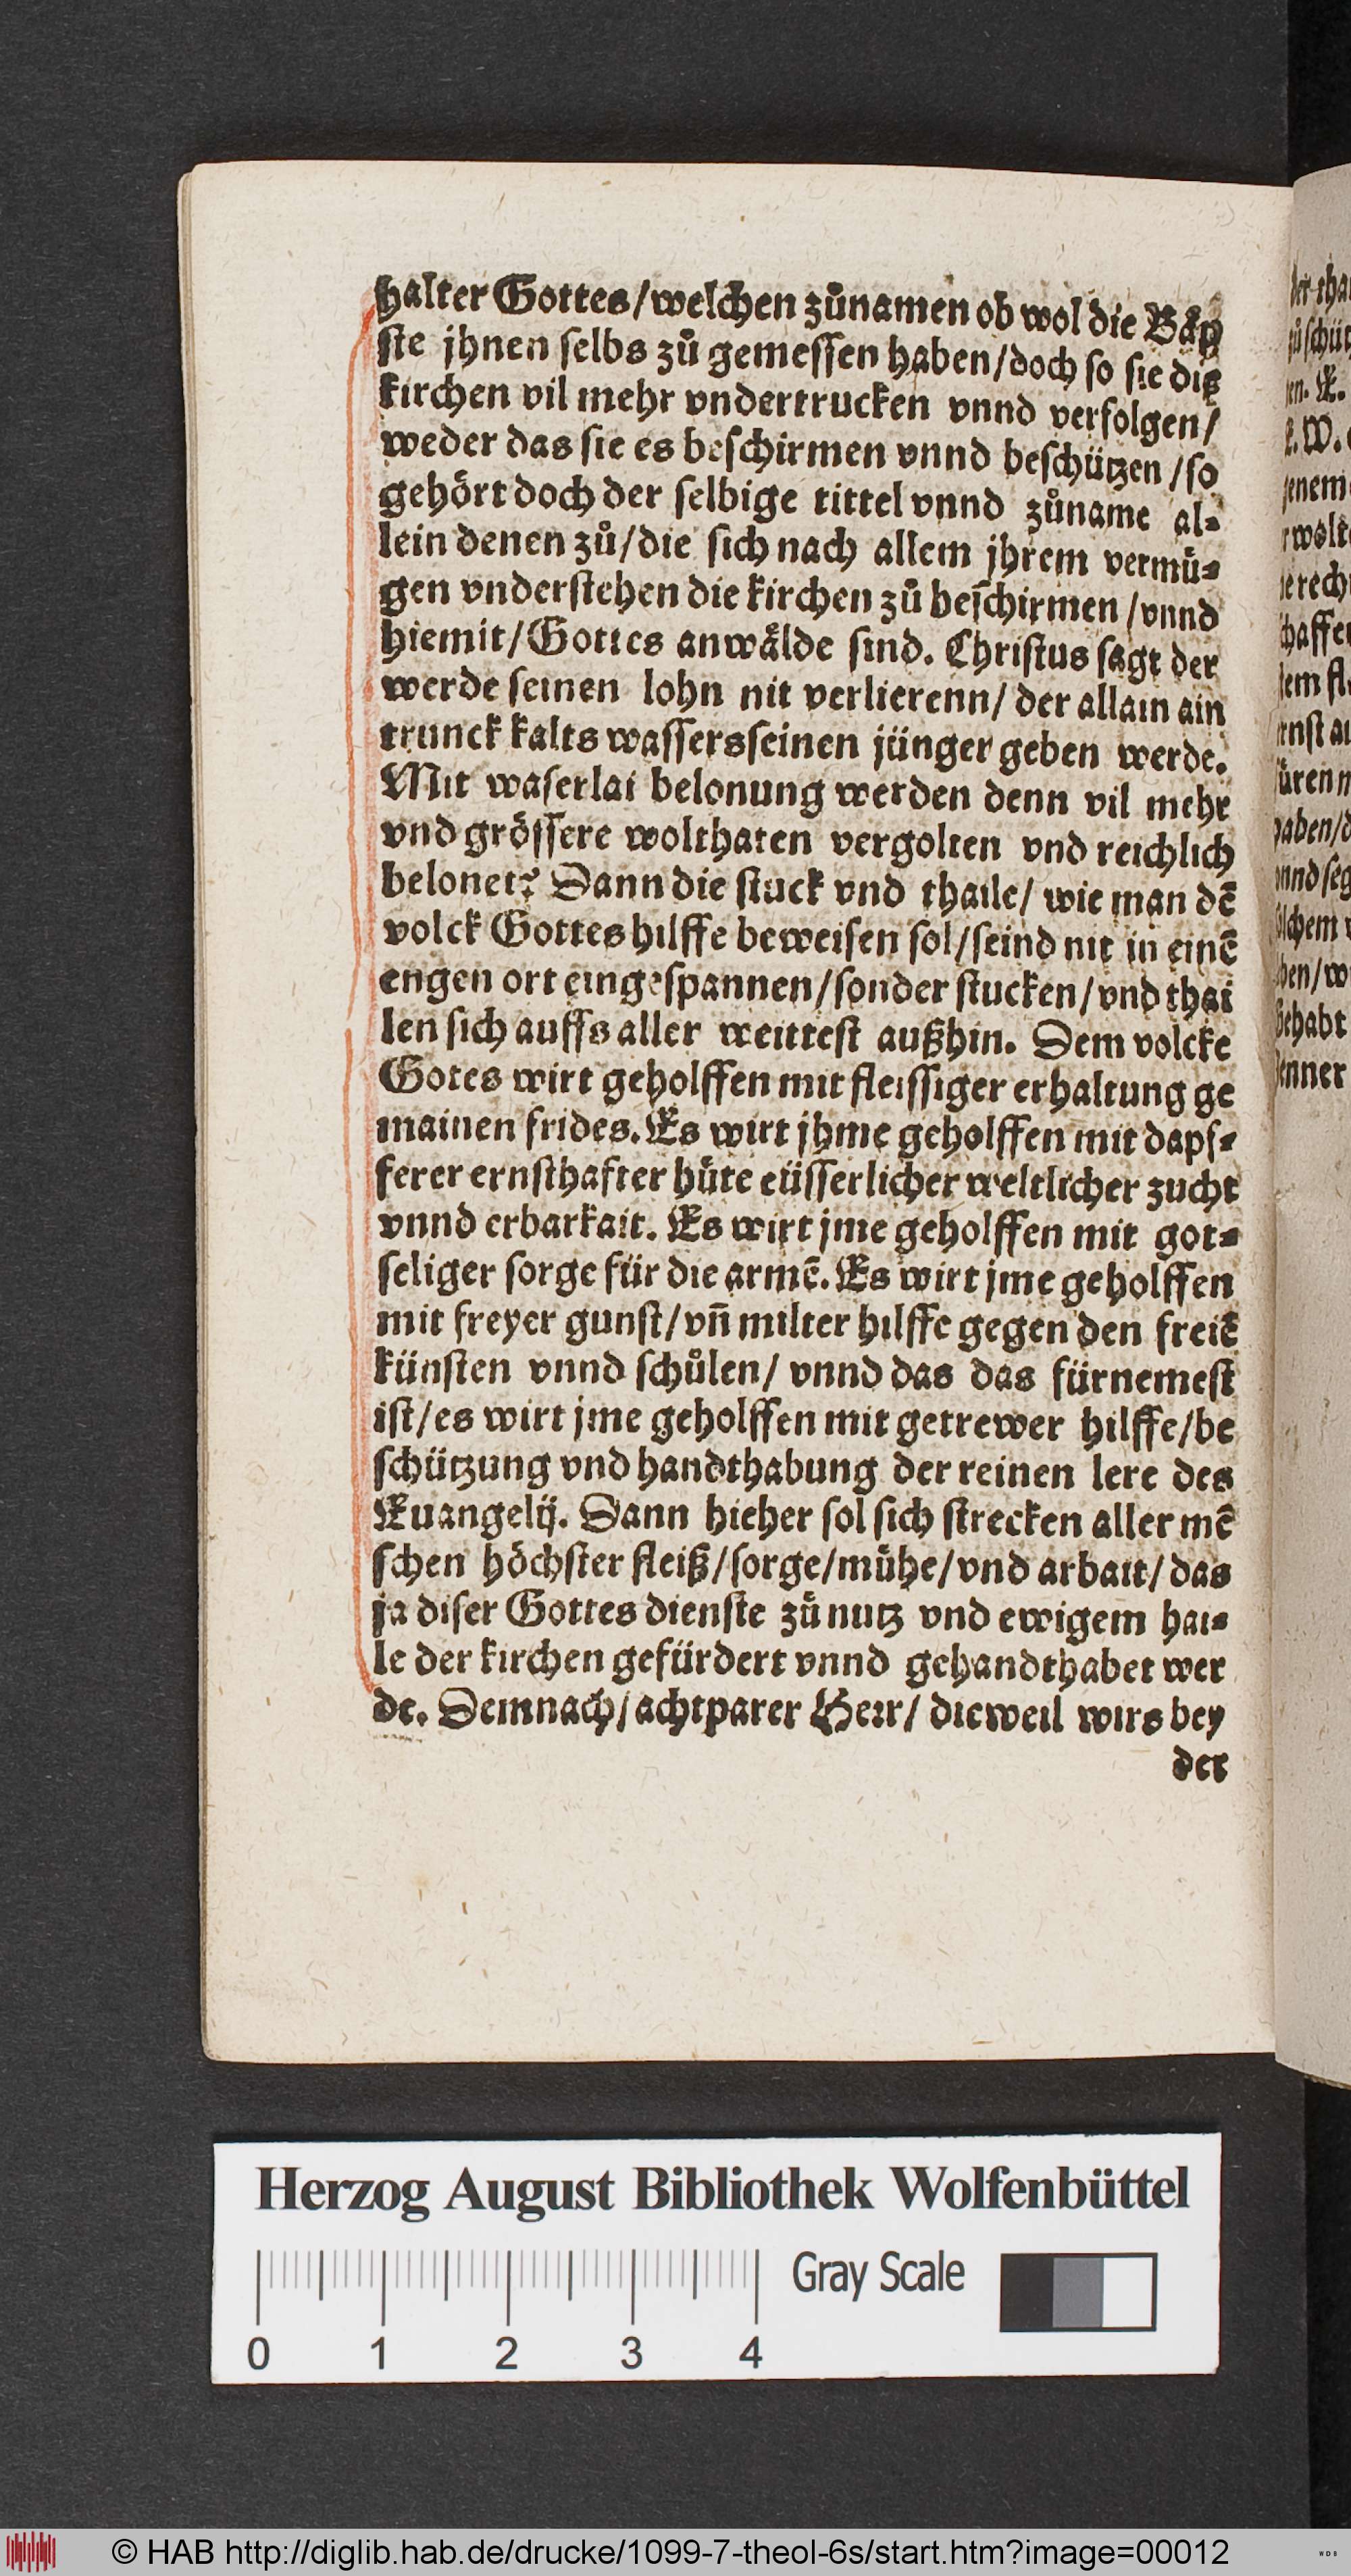 halter Gottes/welchen zůnamen ob wol die Bäp
ste jhnen selbs zů gemessen haben/doch so sie diß
kirchen vil mehr vndertrucken vnnd verfolgen/
weder das sie es beschirmen vnnd beschützen/so
gehört doch der selbige tittel vnnd zůname al-
lein denen zů/die sich nach allem jhrem vermü-
gen vnderstehen die kirchen zů beschirmen/vnnd
hiemit/Gottes anwälde sind. Christus sagt der
werde seinen lohn nit verlierenn/der allain ain
trunck kalts wassers seinen jünger geben werde.
Mit waserlai belonung werden denn vil mehr
vnd grössere wolthaten vergolten vnd reichlich
belonet? Dann die stuck vnd thaile/ wie man dē
volck Gottes hilffe beweisen sol/seind nit in einē
engen ort eingespannen/sonder stucken/vnd thai
len sich auffs aller weittest außhin. Dem volcke
Gotes wirt geholffen mit fleissiger erhaltung ge
mainen frides. Es wirt jhme geholffen mit dapf-
ferer ernsthafter hůte eüsserlicher weltlicher zucht
vnnd erbarkait. Es wirt jme geholffen mit got-
seliger sorge für die armē. Es wirt jme geholffen
mit freyer gunst/vñ milter hilffe gegen den freiē
künsten vnnd schůlen/ vnnd das das fürnemest
ist/es wirt jme geholffen mit getrewer hilffe/be
schützung vnd handthabung der reinen lere des
Euangelij. Dann hieher sol sich strecken aller mē
schen höchster fleiß/sorge/mühe/vnd arbait/das
ja diser Gottes dienste zů nutz vnd ewigem hai-
le der kirchen gefürdert vnnd gehandthabet wer
de. Demnach/achtparer Herr/ dieweil wirs bey
der
Herzog August Bibliothek Wolfenbüttel
Gray Scale
0 1 2 3 4
© HAB http://diglib.hab.de/drucke/1099-7-theol-6s/start.htm?image=00012